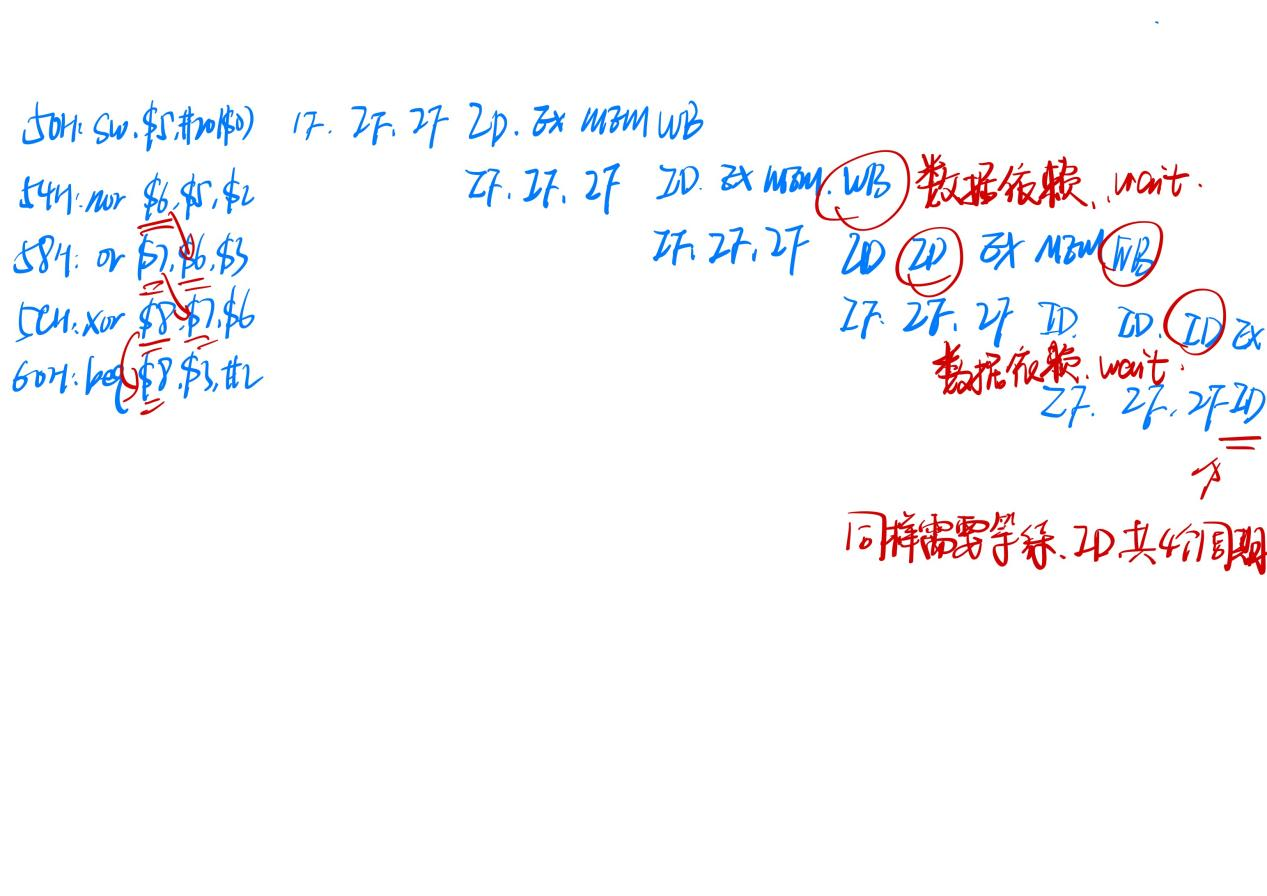 50H: sw. $5, #20($0) IF. IF. IF ID. EX MEM WB
54H: nor $6, $5, $2 IF. IF. IF ID. EX MEM. WB 数据依赖, wait.
58H: or $7, $6, $3 IF. IF. IF ID ID EX MEM WB
5CH: xor $8, $7, $6 IF. IF. IF ID ID. ID EX
数据依赖. wait.
60H: beq $8, $3, #2 IF. IF. IF ID
同样需要等待、ID共4个周期